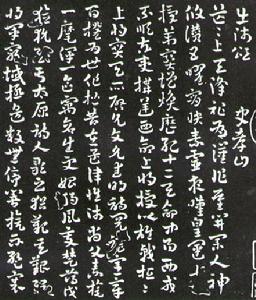 出師頌 史孝山
茫茫上天降祚為漢作基開業人神
攸讚五曜霄映素靈夜歎皇運來
授萬寶增煥歷紀十二天命中易西戎
不順東夷構逆乃命上將授以雄戟桓桓
上將寔天所啟允文允武明詩悅禮憲章
百揆為世作楷昔在孟津惟師尚父素旄
一麾渾一區宇蒼生更始朔風變楚薄伐
獫狁至于太原詩人歌之猶歎其艱況我
將軍窮域極邊鼓無停響旗不蹔褰